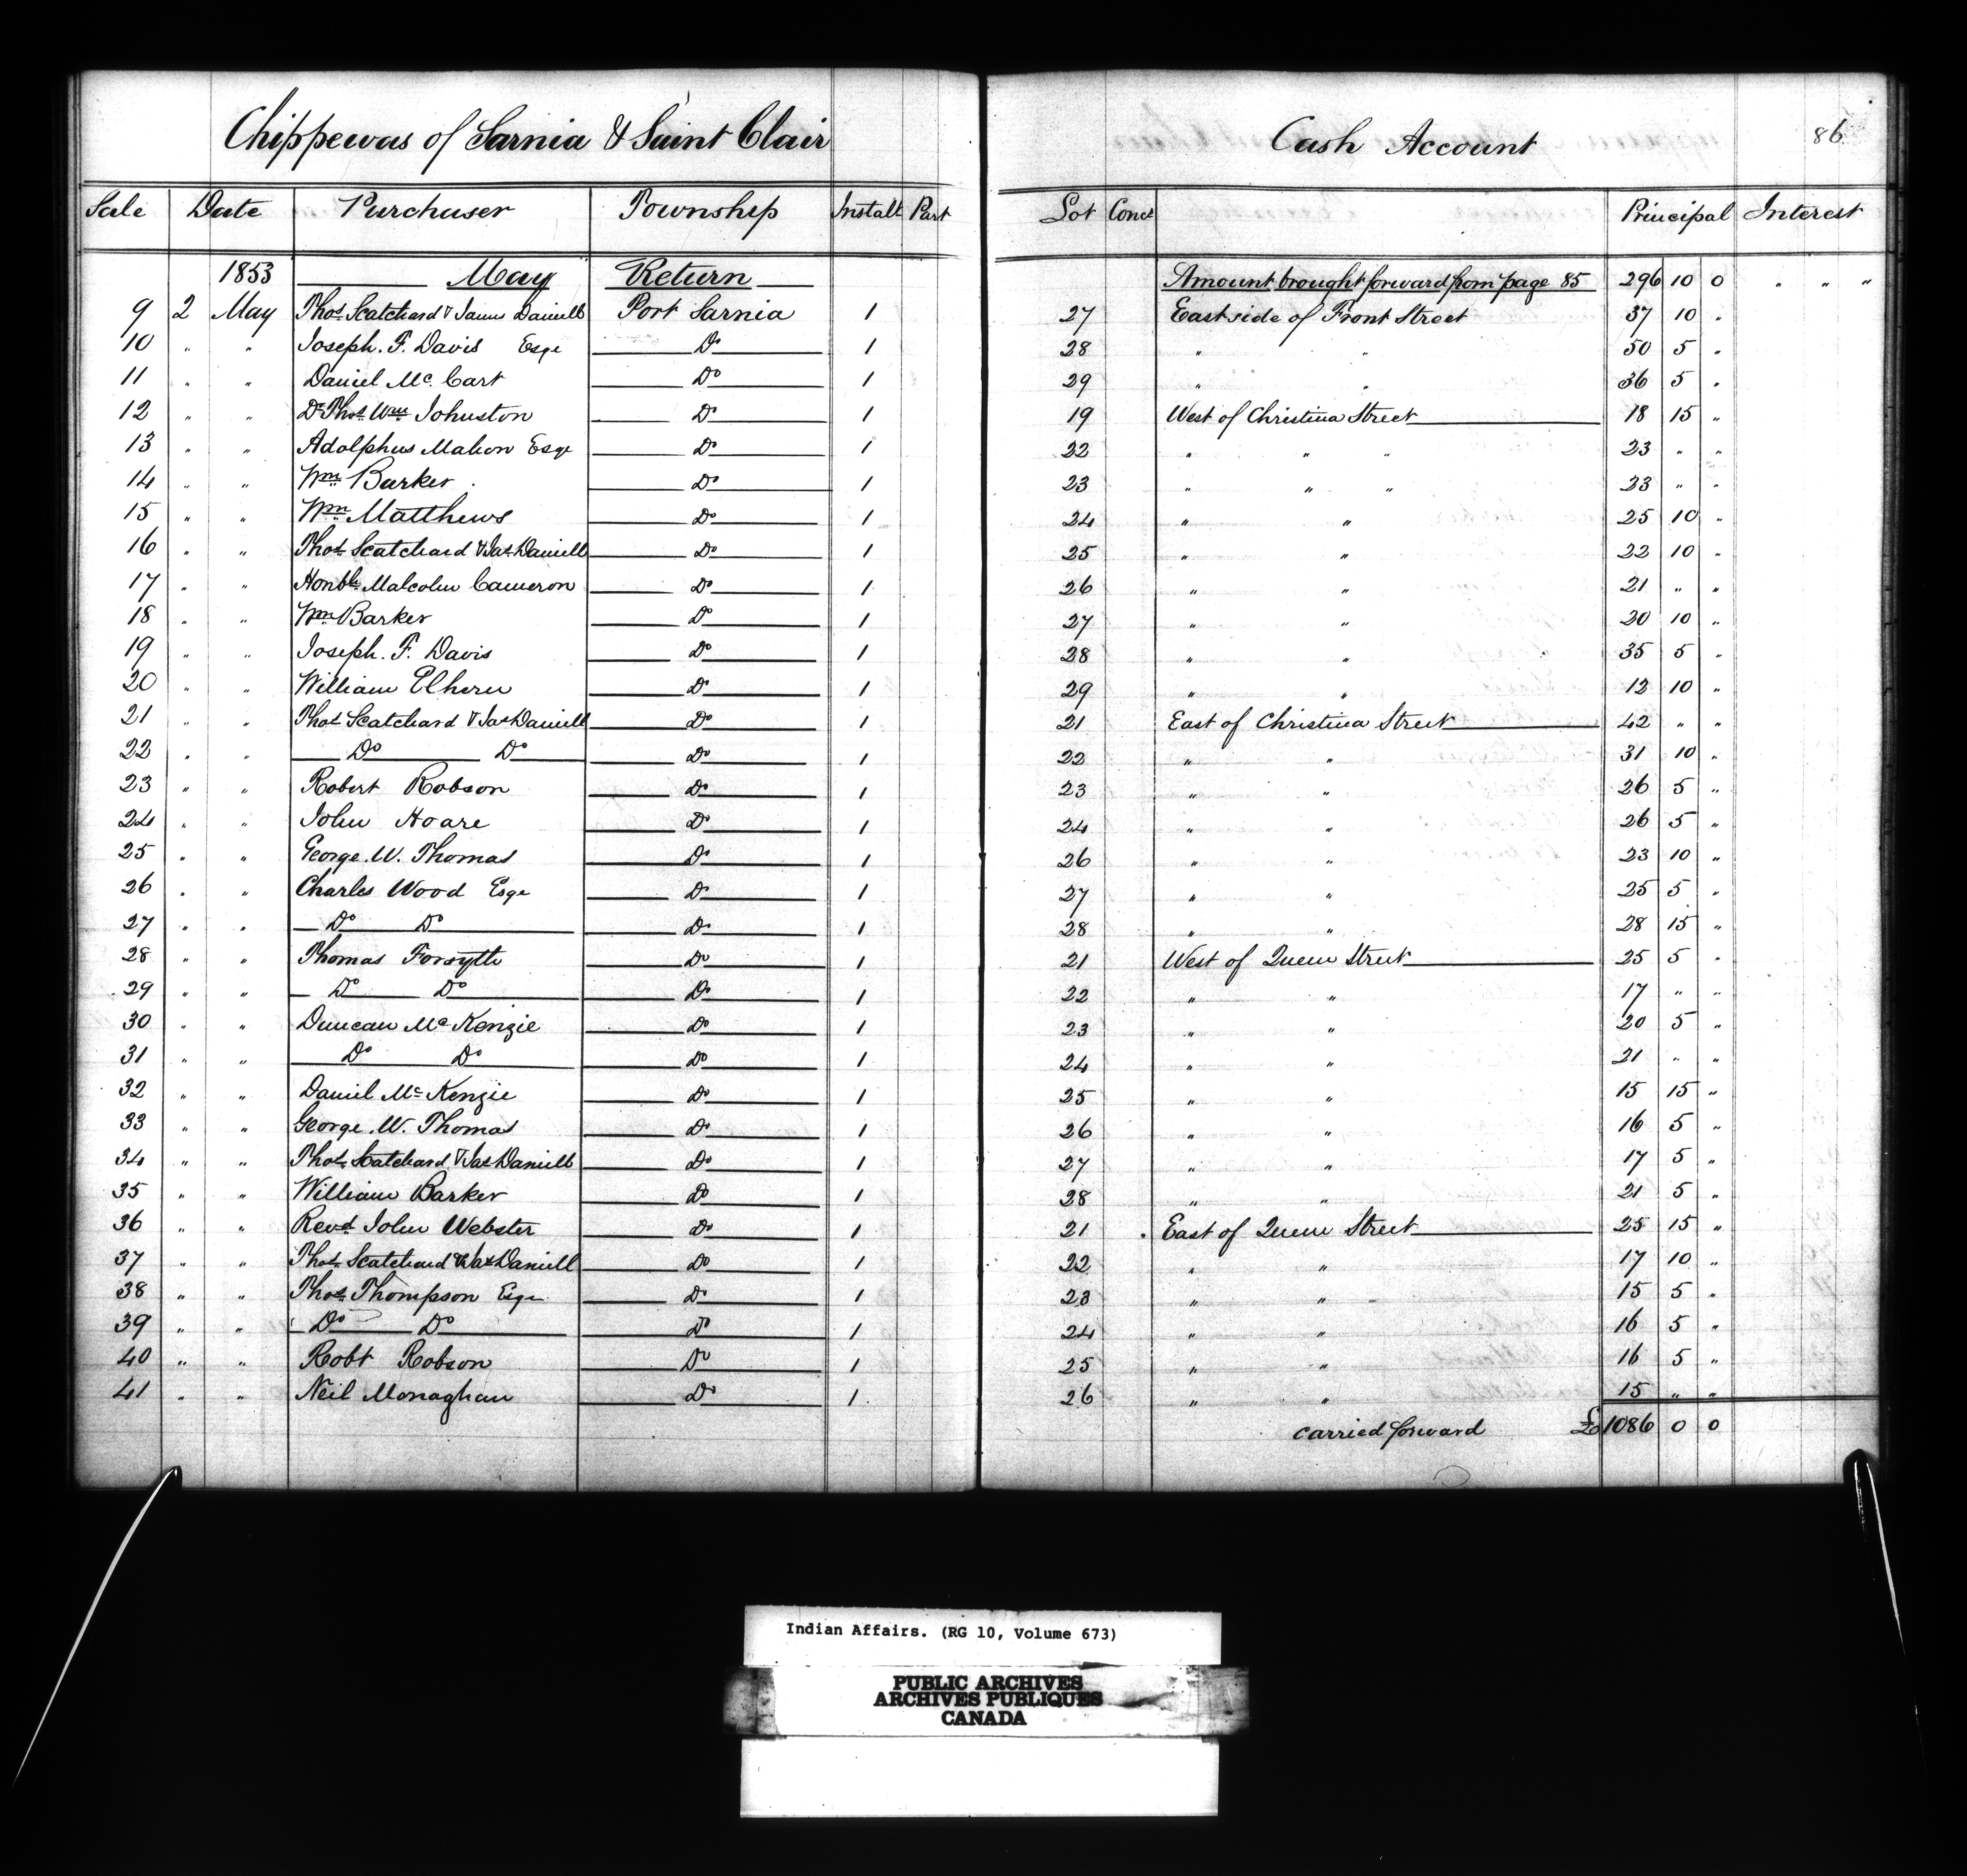 Chippewas of Sarnia & Saint Clair Cash Account 86
Sale Date Purchaser Township Instalt Part Lot Conc Principal Interest
1853 May Return Amount brought forward from page 85 296 10 0 " " "
9 2 May Thos Scatchard & James Daniell Port Sarnia 1 27 East side of Front Street 37 10 "
10 " " Joseph. F. Davis Esqe Do 1 28 " " 50 5 "
11 " " Daniel Mc. Cart Do 1 29 " " 36 5 "
12 " " Dr Thos Wm Johnston Do 1 19 West of Christina Street 18 15 "
13 " " Adolphus Mahon Esqe Do 1 22 " " " 23 " "
14 " " Wm Barker Do 1 23 " " " 23 " "
15 " " Wm Matthews Do 1 24 " " 25 10 "
16 " " Thos Scatchard & Jas Daniell Do 1 25 " " 22 10 "
17 " " Honble Malcolm Cameron Do 1 26 " " 21 " "
18 " " Wm Barker Do 1 27 " " 20 10 "
19 " " Joseph. F. Davis Do 1 28 " " 35 5 "
20 " " William Elhern Do 1 29 " " 12 10 "
21 " " Thos Scatchard & Jas Daniell Do 1 21 East of Christina Street 42 " "
22 " " Do Do Do 1 22 " " 31 10 "
23 " " Robert Robson Do 1 23 " " 26 5 "
24 " " John Hoare Do 1 24 " " 26 5 "
25 " " George. W. Thomas Do 1 26 " " 23 10 "
26 " " Charles Wood Esqe Do 1 27 " " 25 5 "
27 " " Do Do Do 1 28 " " 28 15 "
28 " " Thomas Forsyth Do 1 21 West of Queen Street 25 5 "
29 " " Do Do Do 1 22 " " 17 " "
30 " " Duncan Mc Kenzie Do 1 23 " " 20 5 "
31 " " Do Do Do 1 24 " " 21 " "
32 " " Daniel Mc Kenzie Do 1 25 " " 15 15 "
33 " " George. W. Thomas Do 1 26 " " 16 5 "
34 " " Thos Scatchard & Jas Daniell Do 1 27 " " 17 5 "
35 " " William Barker Do 1 28 " " 21 5 "
36 " " Revd John Webster Do 1 21 East of Queen Street 25 15 "
37 " " Thos Scatchard & Jas Daniell Do 1 22 " " 17 10 "
38 " " Thos Thompson Esqe Do 1 23 " " 15 5 "
39 " " Do Do Do 1 24 " " 16 5 "
40 " " Robt Robson Do 1 25 " " 16 5 "
41 " " Neil Monaghan Do 1 26 " " 15 " "
carried forward £ 1086 0 0
Indian Affairs. (RG 10, Volume 673)
PUBLIC ARCHIVES
ARCHIVES PUBLIQUES
CANADA